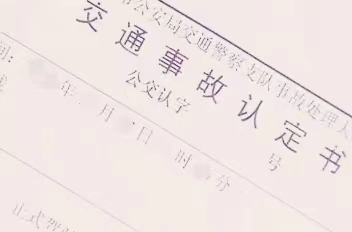 公安局交通警察支队事故处理
交通事故认定书
公交认字 号
间: 年 月 日 时 分
正式